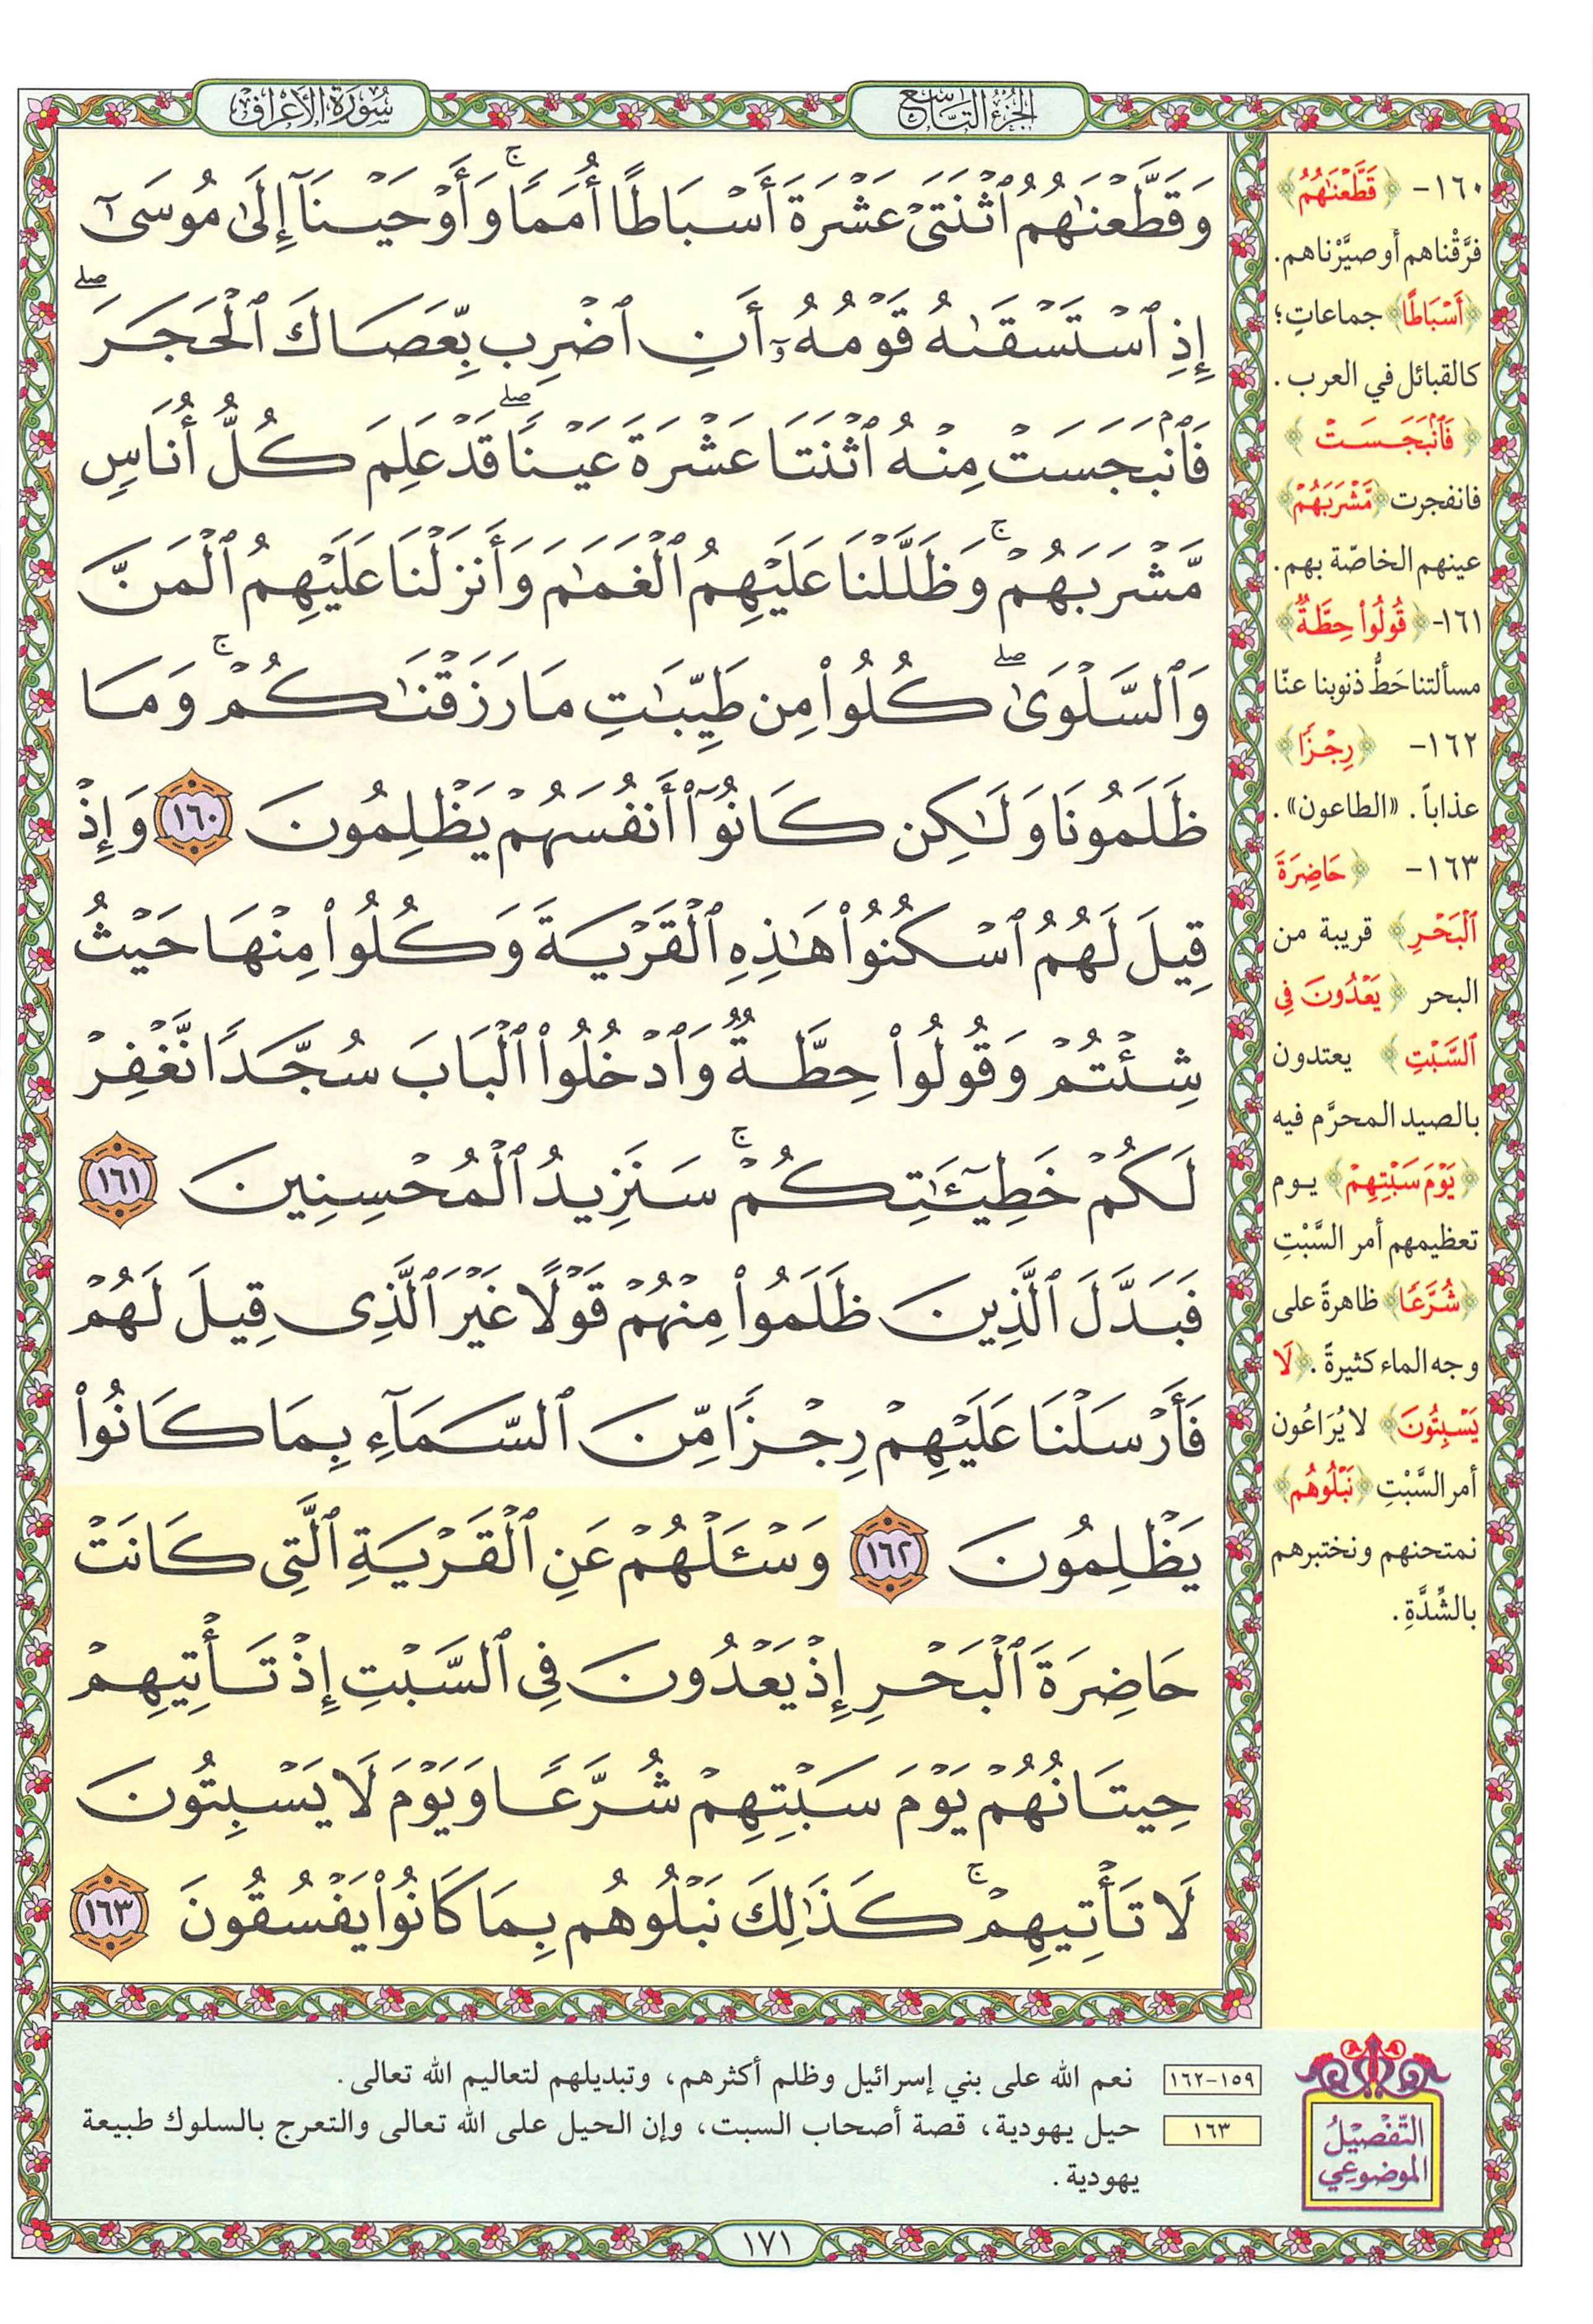 الجزء التاسع
سورة الأعراف
وَقَطَّعْنَٰهُمُ ٱثْنَتَىْ عَشْرَةَ أَسْبَاطًا أُمَمًا ۚ وَأَوْحَيْنَآ إِلَىٰ مُوسَىٰٓ
إِذِ ٱسْتَسْقَىٰهُ قَوْمُهُۥٓ أَنِ ٱضْرِب بِّعَصَاكَ ٱلْحَجَرَ ۖ
فَٱنۢبَجَسَتْ مِنْهُ ٱثْنَتَا عَشْرَةَ عَيْنًا ۖ قَدْ عَلِمَ كُلُّ أُنَاسٍ
مَّشْرَبَهُمْ ۚ وَظَلَّلْنَا عَلَيْهِمُ ٱلْغَمَٰمَ وَأَنزَلْنَا عَلَيْهِمُ ٱلْمَنَّ
وَٱلسَّلْوَىٰ ۖ كُلُوا۟ مِن طَيِّبَٰتِ مَا رَزَقْنَٰكُمْ ۚ وَمَا
ظَلَمُونَا وَلَٰكِن كَانُوٓا۟ أَنفُسَهُمْ يَظْلِمُونَ ١٦٠ وَإِذْ
قِيلَ لَهُمُ ٱسْكُنُوا۟ هَٰذِهِ ٱلْقَرْيَةَ وَكُلُوا۟ مِنْهَا حَيْثُ
شِئْتُمْ وَقُولُوا۟ حِطَّةٌ وَٱدْخُلُوا۟ ٱلْبَابَ سُجَّدًا نَّغْفِرْ
لَكُمْ خَطِيٓـَٰٔتِكُمْ ۚ سَنَزِيدُ ٱلْمُحْسِنِينَ ١٦١
فَبَدَّلَ ٱلَّذِينَ ظَلَمُوا۟ مِنْهُمْ قَوْلًا غَيْرَ ٱلَّذِى قِيلَ لَهُمْ
فَأَرْسَلْنَا عَلَيْهِمْ رِجْزًا مِّنَ ٱلسَّمَآءِ بِمَا كَانُوا۟
يَظْلِمُونَ ١٦٢ وَسْـَٔلْهُمْ عَنِ ٱلْقَرْيَةِ ٱلَّتِى كَانَتْ
حَاضِرَةَ ٱلْبَحْرِ إِذْ يَعْدُونَ فِى ٱلسَّبْتِ إِذْ تَأْتِيهِمْ
حِيتَانُهُمْ يَوْمَ سَبْتِهِمْ شُرَّعًا وَيَوْمَ لَا يَسْبِتُونَ
لَا تَأْتِيهِمْ ۚ كَذَٰلِكَ نَبْلُوهُم بِمَا كَانُوا۟ يَفْسُقُونَ ١٦٣
١٦٠- ﴿قَطَّعْنَٰهُمُ﴾
فرَّقْناهم أو صيَّرْناهم.
﴿أَسْبَاطًا﴾ جماعاتٍ؛
كالقبائل في العرب.
﴿فَٱنۢبَجَسَتْ﴾
فانفجرت ﴿مَّشْرَبَهُمْ﴾
عينهم الخاصّة بهم.
١٦١- ﴿قُولُوا۟ حِطَّةٌ﴾
مسألتنا حَطُّ ذنوبنا عنّا
١٦٢- ﴿رِجْزًا﴾
عذاباً. «الطاعون».
١٦٣- ﴿حَاضِرَةَ
ٱلْبَحْرِ﴾ قريبة من
البحر ﴿يَعْدُونَ فِى
ٱلسَّبْتِ﴾ يعتدون
بالصيد المحرَّم فيه
﴿يَوْمَ سَبْتِهِمْ﴾ يوم
تعظيمهم أمر السَّبْتِ
﴿شُرَّعًا﴾ ظاهرةً على
وجه الماء كثيرةً. ﴿لَا
يَسْبِتُونَ﴾ لا يُرَاعُون
أمر السَّبْتِ ﴿نَبْلُوهُم﴾
نمتحنهم ونختبرهم
بالشِّدَّةِ.
التَّفْصِيلُ
الموضوعي
١٥٩-١٦٢ نعم الله على بني إسرائيل وظلم أكثرهم، وتبديلهم لتعاليم الله تعالى.
١٦٣ حيل يهودية، قصة أصحاب السبت، وإن الحيل على الله تعالى والتعرج بالسلوك طبيعة
يهودية.
١٧١